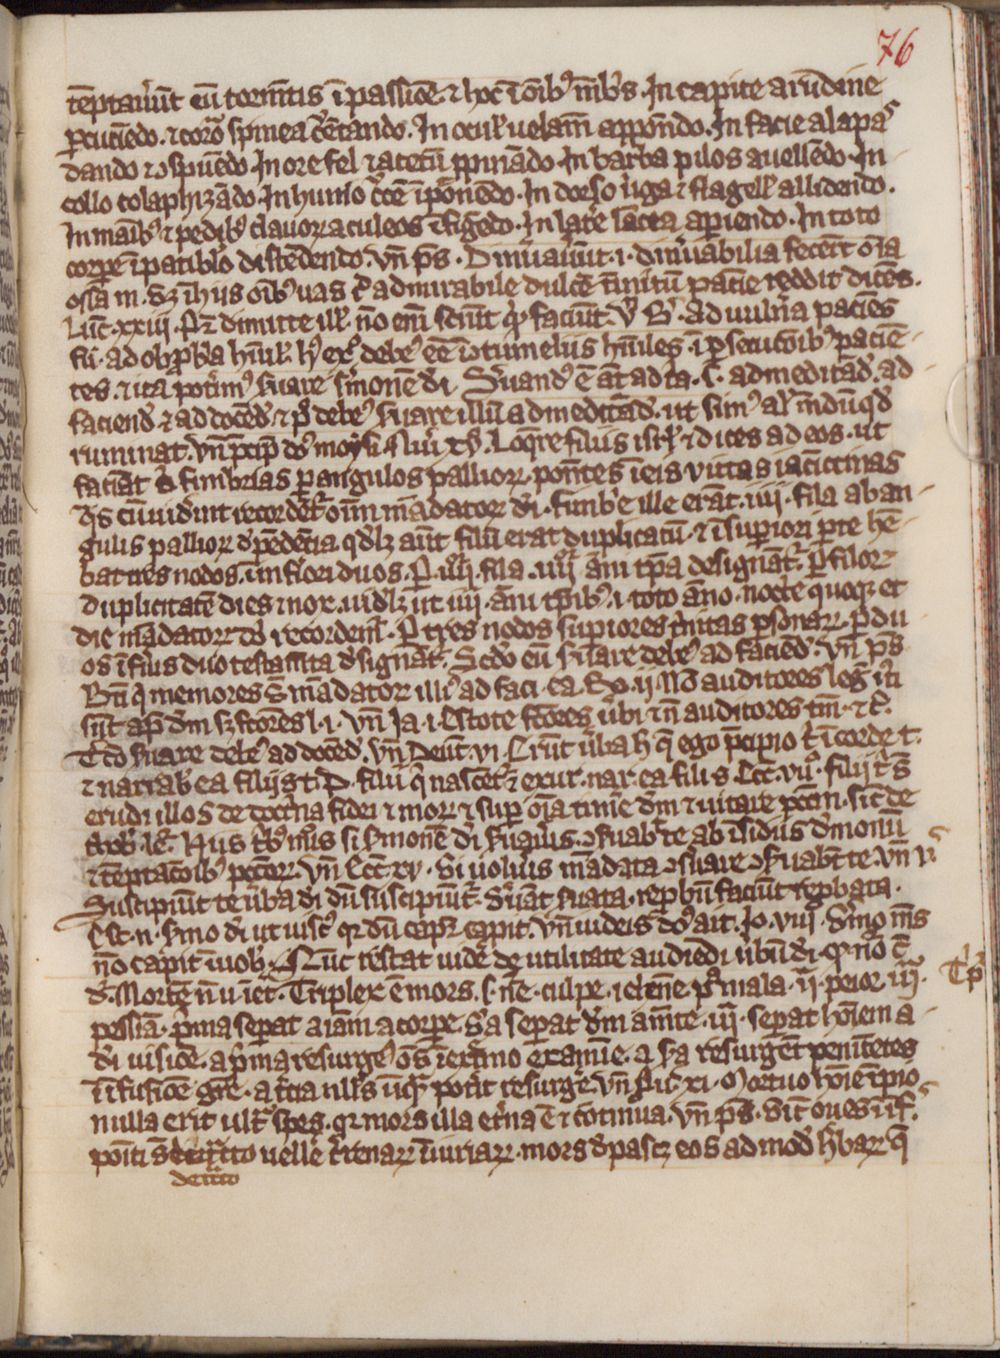 76
te̅ptaueru̅t eu̅ torme̅tis i̅ passio̅e ⁊ hoc i̅ o̅ibꝰ me̅bris. In capite arundine
ꝑcucie̅do. ⁊ coro̅a spinea circu̅dando. In oculis uelam̅ appone̅do. In facie alapas
dando ⁊ ꝯspue̅do In ore fel ⁊ acetu̅ ꝓpina̅do In barba pilos auelle̅do. In
collo colaphiza̅do In hum̅o cruce̅ i̅pone̅do. In dorso uirga ⁊ flagell̅ allidendo.
In manibꝰ ⁊ pedibꝰ clauoꝝ aculeos i̅fige̅do. In late̅ lancea apiendo. In toto
corpe̅ i̅ patiblo diste̅dendo vn̅ p̅s. Dinu̅aueru̅t .i. dinu̅abilia fecer̅t o̅ia
ossa m̅. Sꝫ i̅ hiis o̅ibꝰ uas t̅ admirabile dulce̅ tinnitu̅ pacie̅ reddit dice̅s.
Luc̅ xxiii. Pr̅ dimitte ill̅ no̅ eni̅ sciu̅t qꝛ faciu̅t. Ad uuln̅a pacie̅s
fu̅. ad obꝓb̅a hu̅il̅. hꝰ exº debeꝰ ee̅ i̅ ꝯtumeliis hu̅iles. i̅ ꝑsecuc̅oibꝰ pacie̅
tes. ⁊ ita poterimꝰ suare sermone̅ di̅. Seruandꝰ e̅ aut̅ ad t̅a. s. ad medita̅d̅. ad
faciend̅ ⁊ ad doce̅d̅. ⁊ pº debeꝰ suare illu̅ ad medita̅d̅. ut simꝰ al̅ mu̅du̅ qd̅
ruminat. vn̅ p̅cip̅ do̅s moysi. Nu̅i xv. Loq̅re filiis isr̅l ⁊ dices ad eos. ut
facia̅t s̅ fimbrias ꝑ angulos pallioꝝ. pone̅tes i̅ eis uittas iaci̅ctinas
q̅s cu̅ uideri̅t recorde̅t̅ o̅iu̅ ma̅datoꝝ di̅. fimb̅e ille era̅t .iiii. fila ab an
gulis pallioꝝ depe̅de̅tia qd̅lꝫ aut̅ filu̅ erat duplicatu̅. ⁊ i̅ superiori ꝑte he̅
bat tres nodos. i̅ inf̅iori duos. P̅ iiii̅ fila .iiii̅ an̅i tp̅a designa̅t̅. P̅ filoꝝ
duplicitate̅ dies ⁊ nox. uid̅lꝫ ut iiii. an̅i tp̅ibꝰ .i. toto an̅o. nocte quoqꝫ et
die ma̅datoꝝ di̅ recorden̅t. P̅ tres nodos supiores t̅nitas ꝑsonaꝝ. p̅ du
os i̅f̅ius duo testam̅ta designa̅t̅. Sc̅do eu̅ suare debeꝰ ad facie̅d̅. vn̅ p̅s
Et q̅ memores s̅t ma̅datoꝝ illiꝰ ad faci. ea. Ro. ii No̅ auditores leg̅ iu̅ti
su̅t ap̅ dm̅ sꝫ f̅tores l. i. vn̅ Ja. i. Estote f̅tores ver̅bi ⁊ n̅ auditores tm̅. ⁊c̅.
T̅cio suare debeꝰ ad doce̅d̅. vn̅ Deut̅. vi. Eru̅t u̅ba h̅ q̅ ego p̅cipio t̅ i̅ corde t.
⁊ narrab̅ ea filiis t. P̅. filii q̅ nasce̅t̅ ⁊ exur. nar. ea filiis. Ecc̅ viiº. filii t̅ s̅
erudi illos de doct̅na fidei ⁊ moꝝ ⁊ sup o̅ia time̅ dm̅ ⁊ uitare pc̅cm̅. sic̅ de
thob̅ le̅. Hiis t̅bꝰ mo̅is si s̅mone̅ di̅ s̅uau̅is. ꝯs̅uab̅ te ab i̅sidiis demonu̅
⁊ te̅ptac̅oibꝰ pc̅toꝝ. vn̅ Ecc̅ xv. Si uolu̅is ma̅data ꝯs̅uare ꝯs̅uab̅t te. vn̅ v̅
Suscipiu̅t te u̅ba di̅ du̅ suscipiu̅t̅. s̅ua̅t s̅uata. rep̅bu̅ faciu̅t rep̅bata.
Est. n̅. s̅mo di̅ ut uisc̅ qꝛ du̅ capit̅ capit. vn̅ iudeis do̅s ait. Jo. viii. S̅mo m̅s
no̅ capit i̅ uob̅. Nu̅c restat uide̅ de utilitate audie̅di u̅bu̅ di̅. qꝛ no̅ e̅
d̅. Morte̅ n̅ ui̅et. Triplex e̅ mors. s. n̅e. culpe. ⁊ iehe̅ne pº mala. ii̅ peior iii̅.
pessi̅a. p̅ma sep̅at a̅iam a corpe̅. s̅a sep̅at dm̅ a me̅te. iii̅. sep̅at ho̅iem a
di̅ uisio̅e. a p̅ma resurgeꝰ o̅s i̅ ext̅mo exami̅e. a s̅a resurge̅t penite̅tes
i̅ i̅fusio̅e gr̅e. a t̅cia nll̅s u̅qꝫ pot̅it resurge̅ vn̅ Pro̅ xi. Mortuo ho̅ie i̅pio
nulla erit ult̅ spes. qꝛ mors illa et̅na e̅ ⁊ continua. vn̅ p̅s. Sic̅ oues i̅ i̅f.
po̅iti s̅t detr̅cto uelle̅ t̅renaꝝ diuiciaꝝ. mors depascꝫ eos ad mod̅ h̅baꝝ q̅